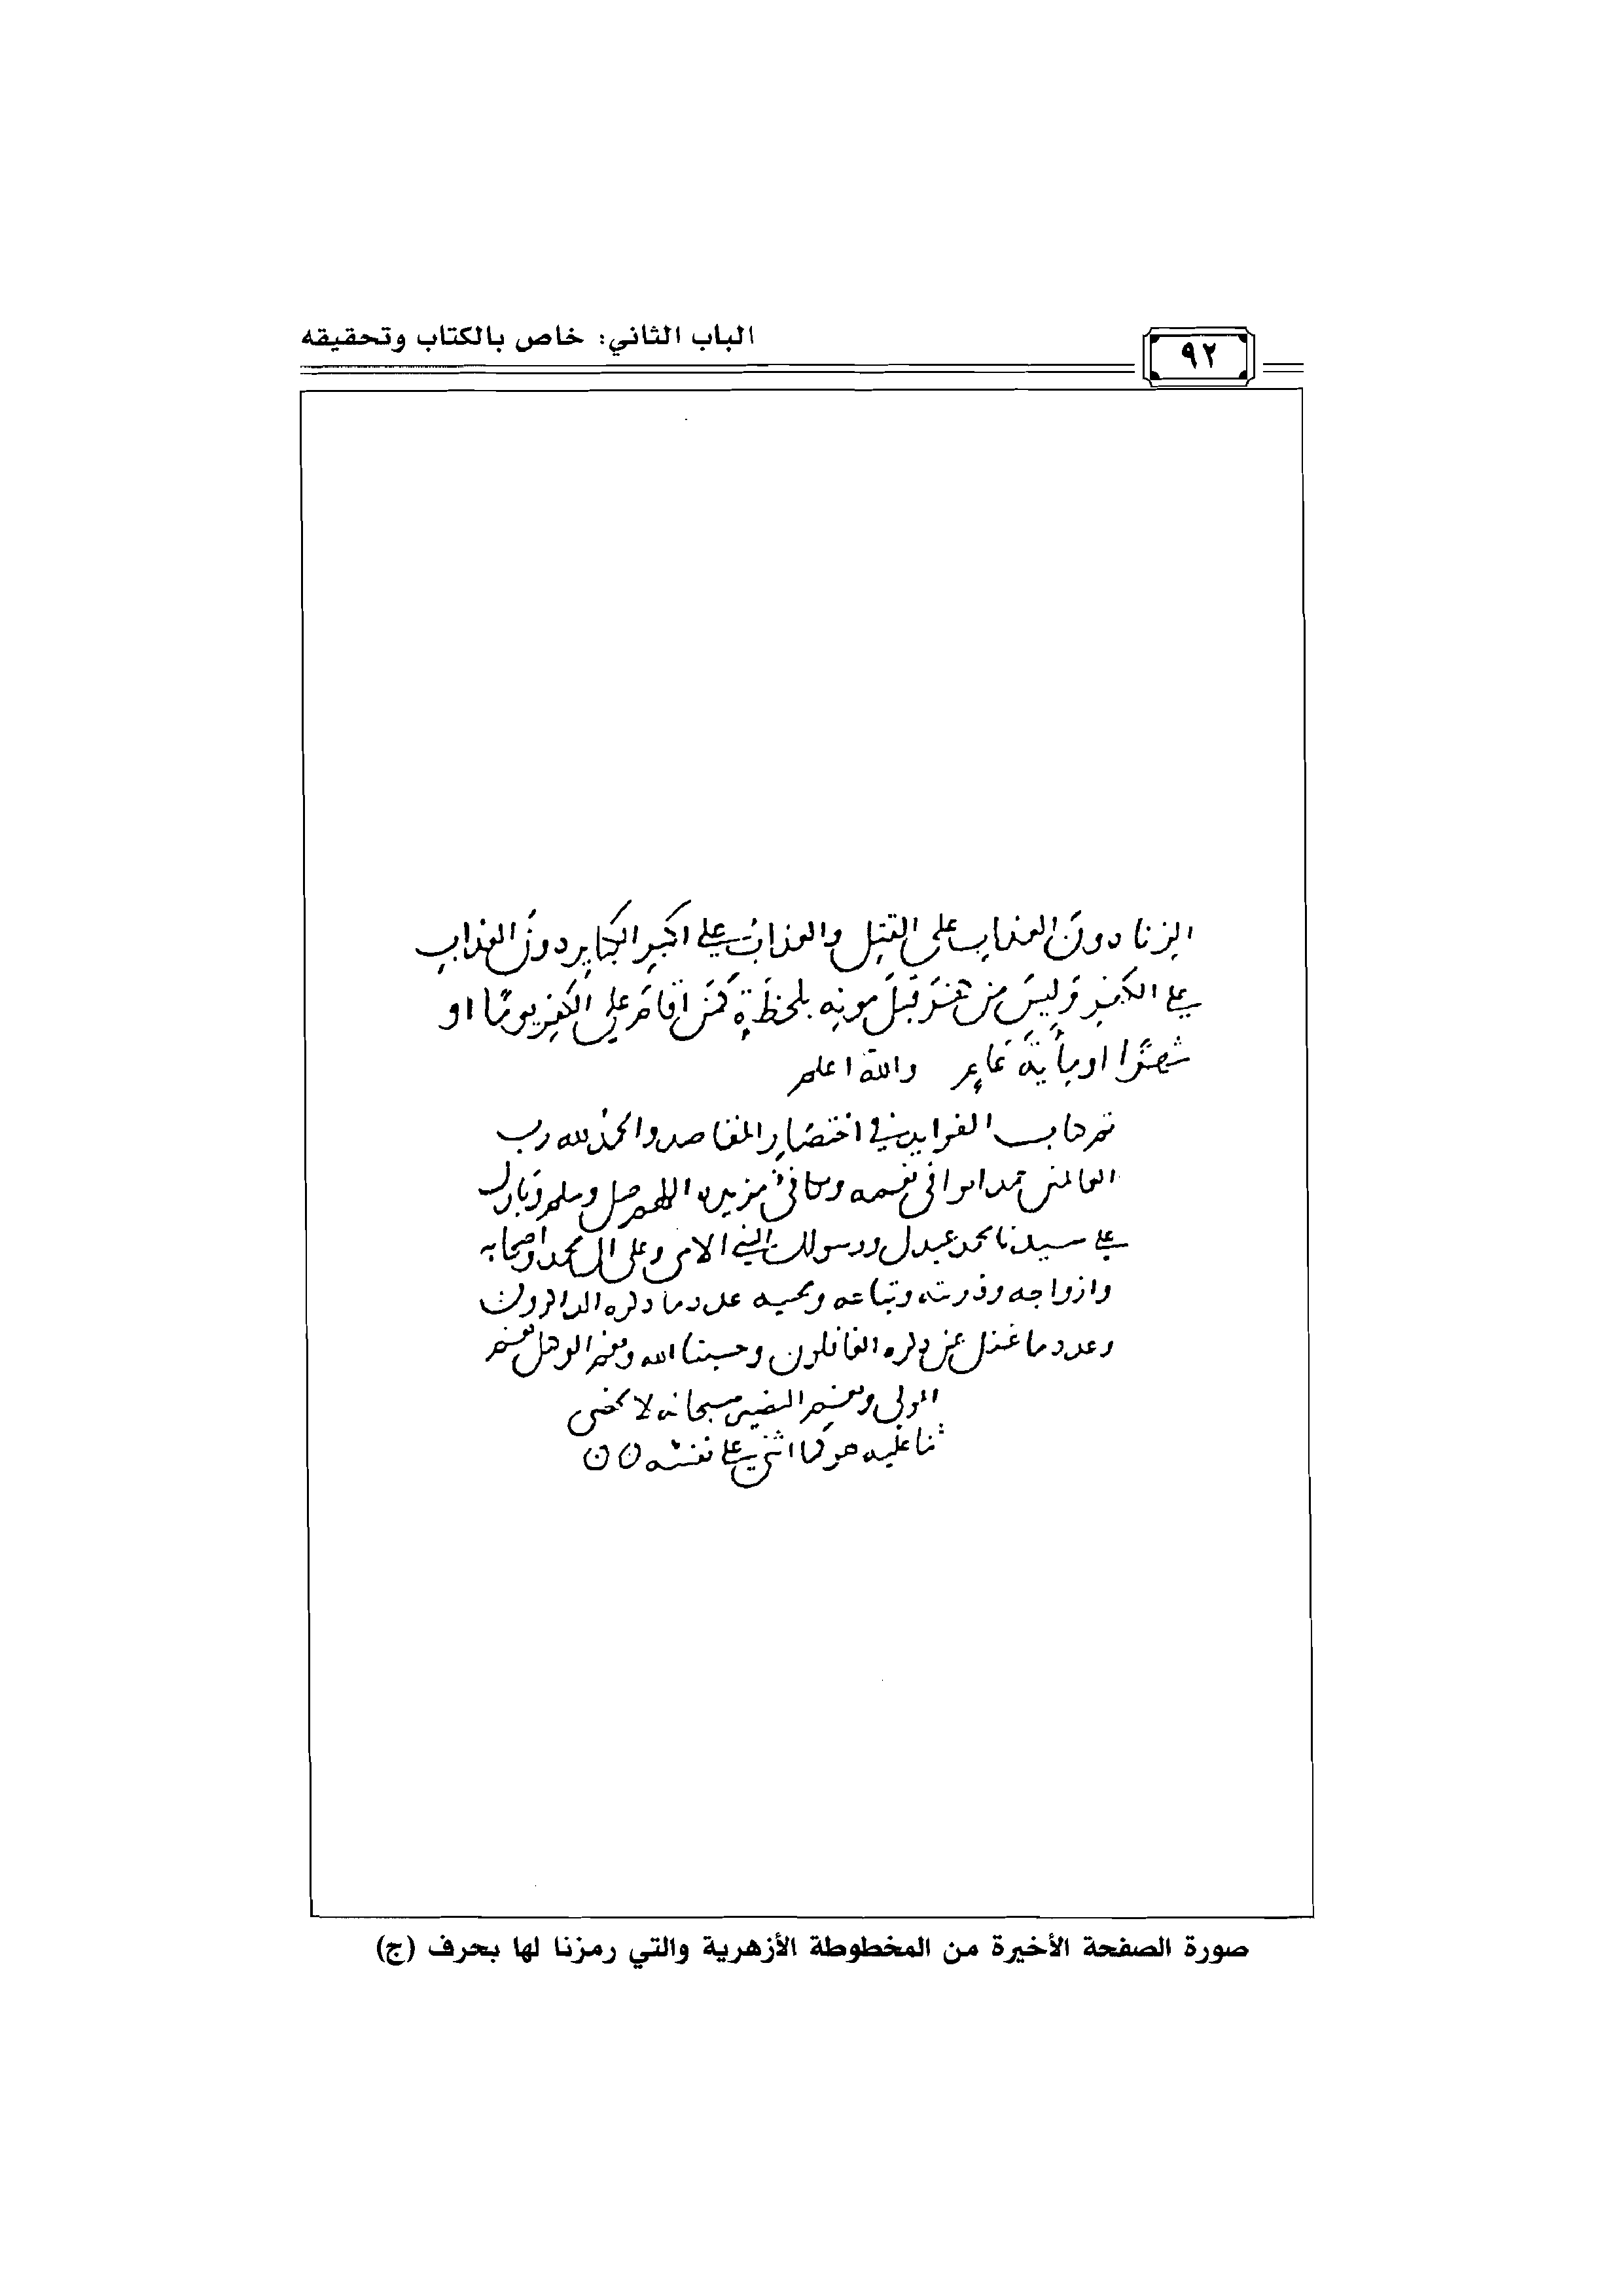 ٩٢
الباب الثاني: خاص بالكتاب وتحقيقه
الزنا دونَ العذابِ على القتلِ والعذابُ على اكبرِ الكبايرِ دونَ العذابِ
على الكفرِ وَليسَ من كفرَ قبلَ موتِه بلحظَةٍ كمَن اقامَ على الكفرِ يومًا او
شهرًا او مايةَ عَامٍ والله اعلم
تم كتاب الفوايد في اختصَارِ المقاصد والحمدُ لله رب
العالمين حمدا يوافي نعمه ويكافئ مزيده اللهم صل وسلم وبارك
على سيدنا محمد عبدك ورسولك النبي الامي وعلى ال محمد واصحابه
وازواجه وذريته وتباعه ومحبيه عدد ما ذكره الذاكرون
وعدد ما غفل عن ذكره الغافلون وحسبنا الله ونعم الوكيل نعم
المولى ونعم النصير سبحانه لا نحصى
ثنا عليه هو كما اثنى على نفسه ۞
صورة الصفحة الأخيرة من المخطوطة الأزهرية والتي رمزنا لها بحرف (ج)